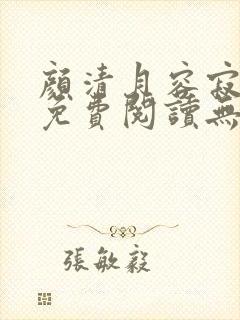 顏清月容寂
免費閱讀無
張敏毅